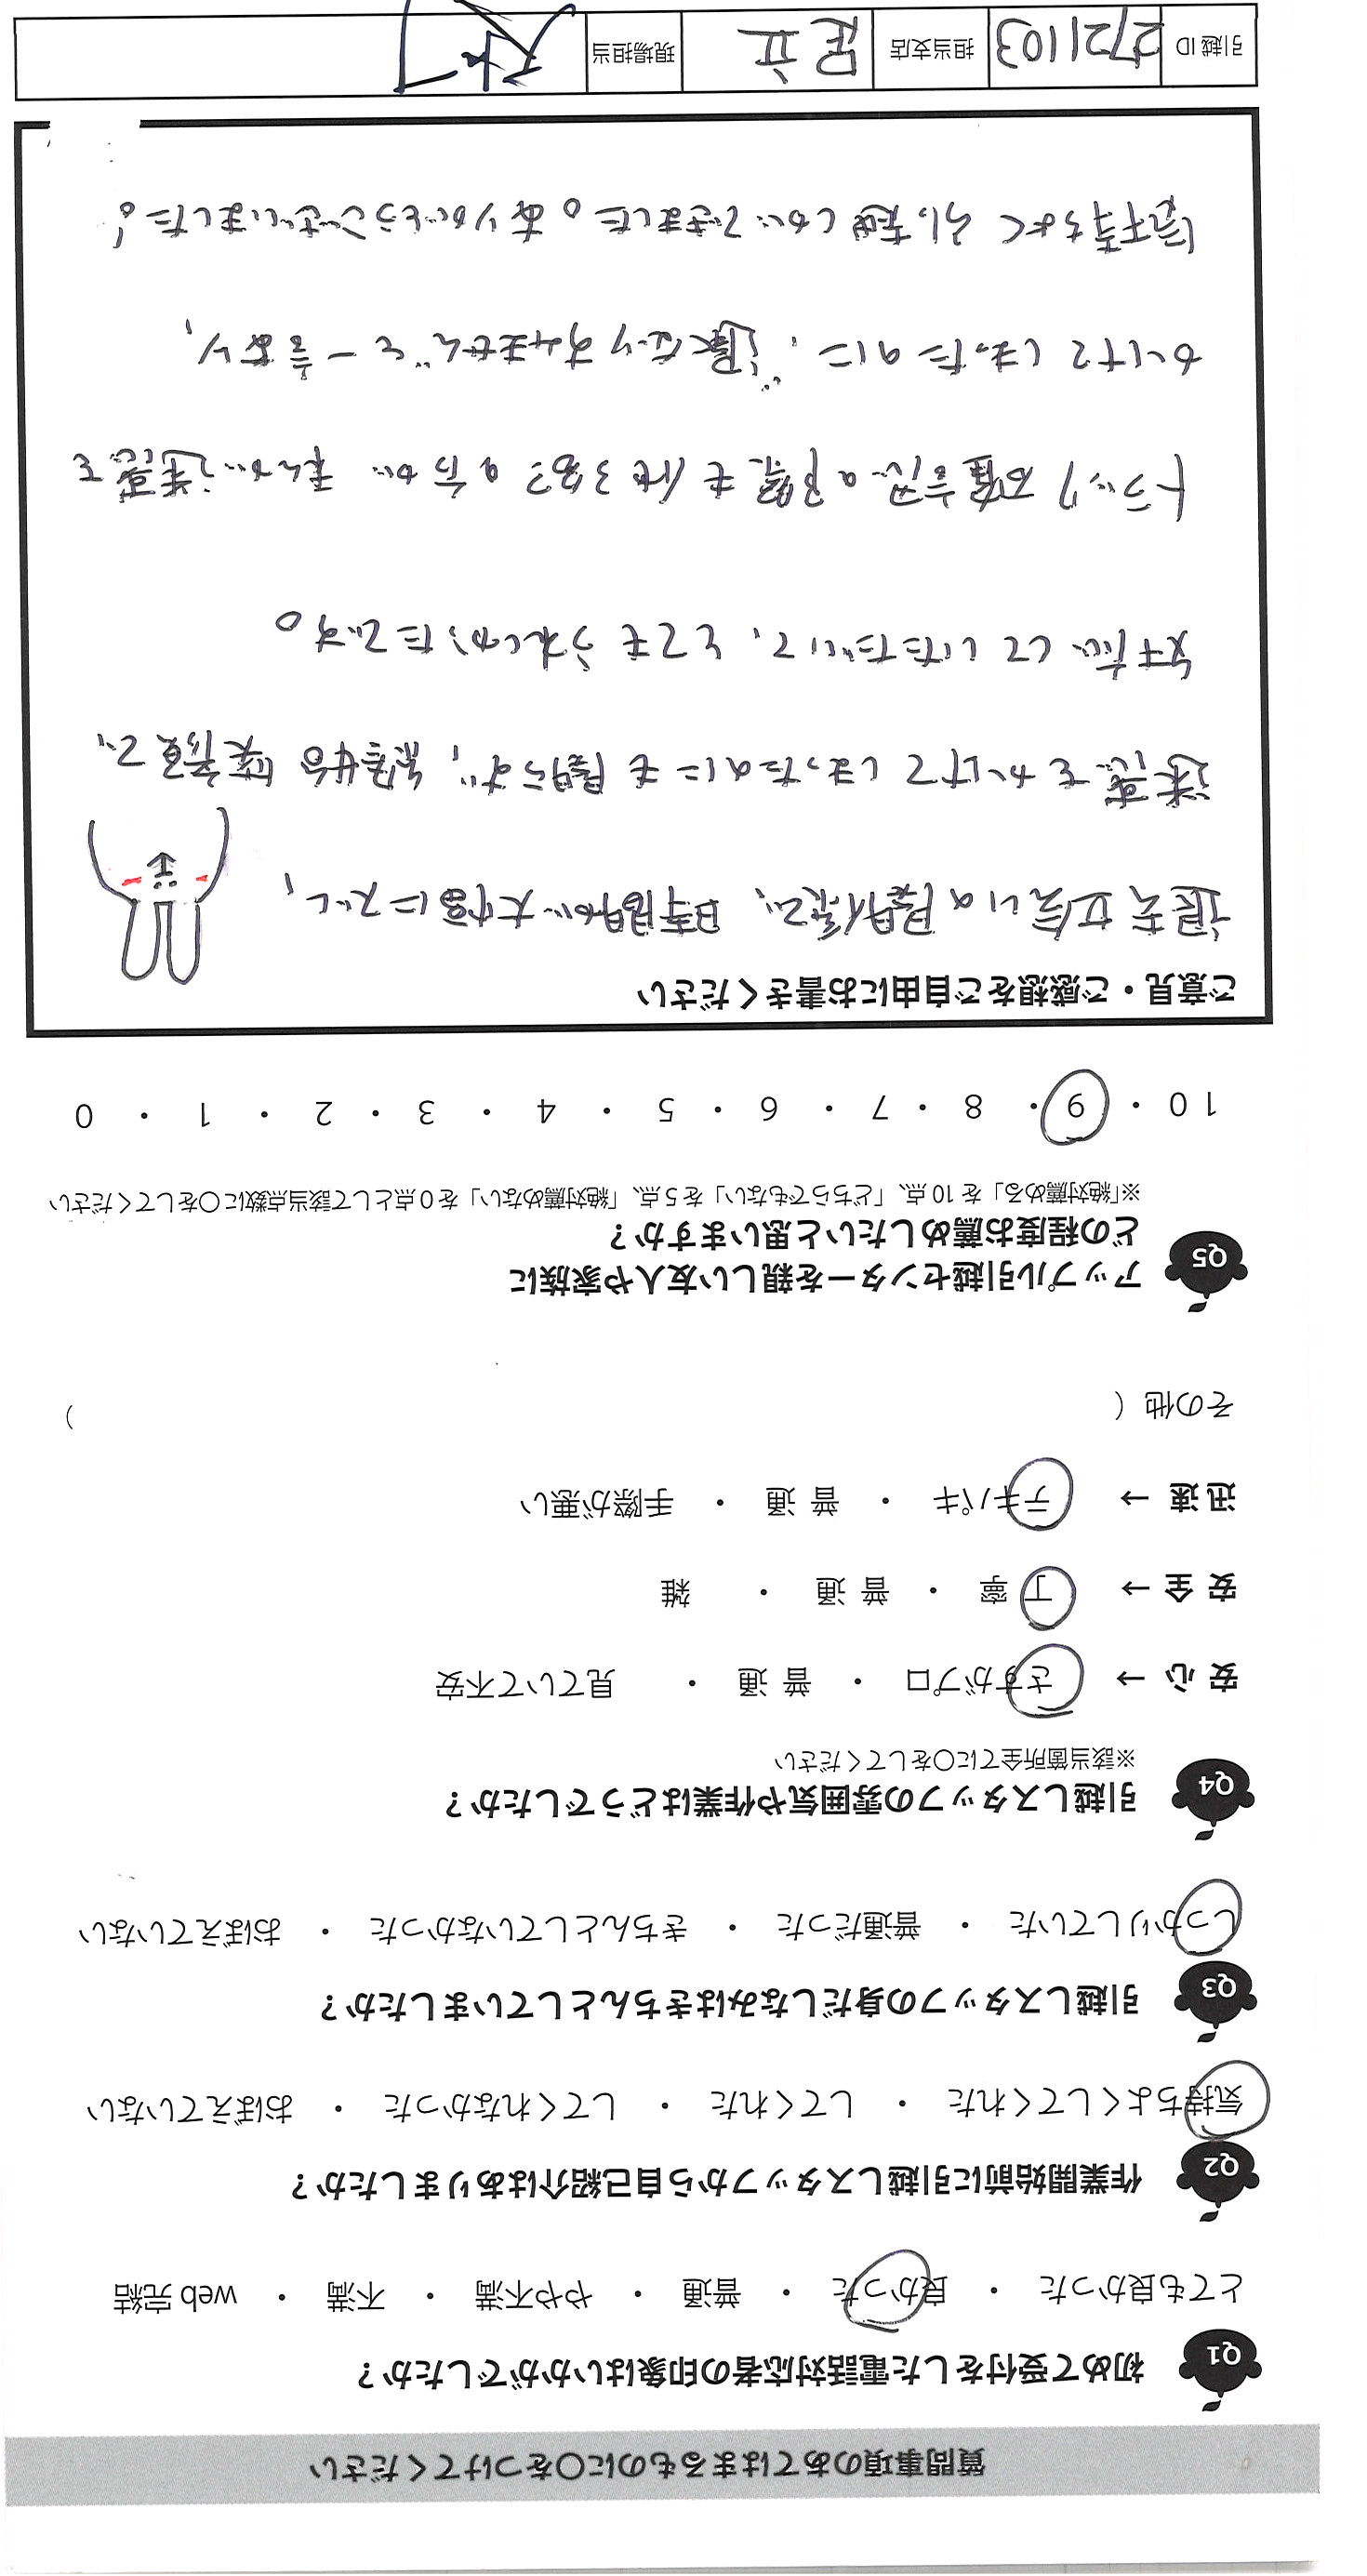 質問事項のあてはまるものに〇をつけてください
Q1 初めて受付をした電話対応者の印象はいかがでしたか？
とても良かった ・ 良かった ・ 普通 ・ やや不満 ・ 不満 ・ web 完結
Q2 作業開始前に引越しスタッフから自己紹介はありましたか？
気持ちよくしてくれた ・ してくれた ・ してくれなかった ・ おぼえていない
Q3 引越しスタッフの身だしなみはきちんとしていましたか？
しっかりしていた ・ 普通だった ・ きちんとしていなかった ・ おぼえていない
Q4 引越しスタッフの雰囲気や作業はどうでしたか？
※該当箇所全てに〇をしてください
安 心 → さすがプロ ・ 普 通 ・ 見ていて不安
安 全 → 丁 寧 ・ 普 通 ・ 雑
迅 速 → テキパキ ・ 普 通 ・ 手際が悪い
その他（ ）
Q5 アップル引越センターを親しい友人や家族に
どの程度お薦めしたいと思いますか？
※「絶対薦める」を 10 点、「どちらでもない」を 5 点、「絶対薦めない」を 0 点として該当点数に〇をしてください
10 ・ 9 ・ 8 ・ 7 ・ 6 ・ 5 ・ 4 ・ 3 ・ 2 ・ 1 ・ 0
ご意見・ご感想をご自由にお書きください
退去立会いの関係で、時間が大幅にズレ、
迷惑をかけてしまったのにも関らず、終始笑顔で、
対応していただいて、とてもうれしかったです。
トラック確認の際も他3名?の方が 私が迷惑を
かけてしまったのに、"遅くなりすみません"と一言あり、
気持ちよく引っ越しができました。ありがとうございました!
引越 ID 2721103 担当支店 足立 現場担当